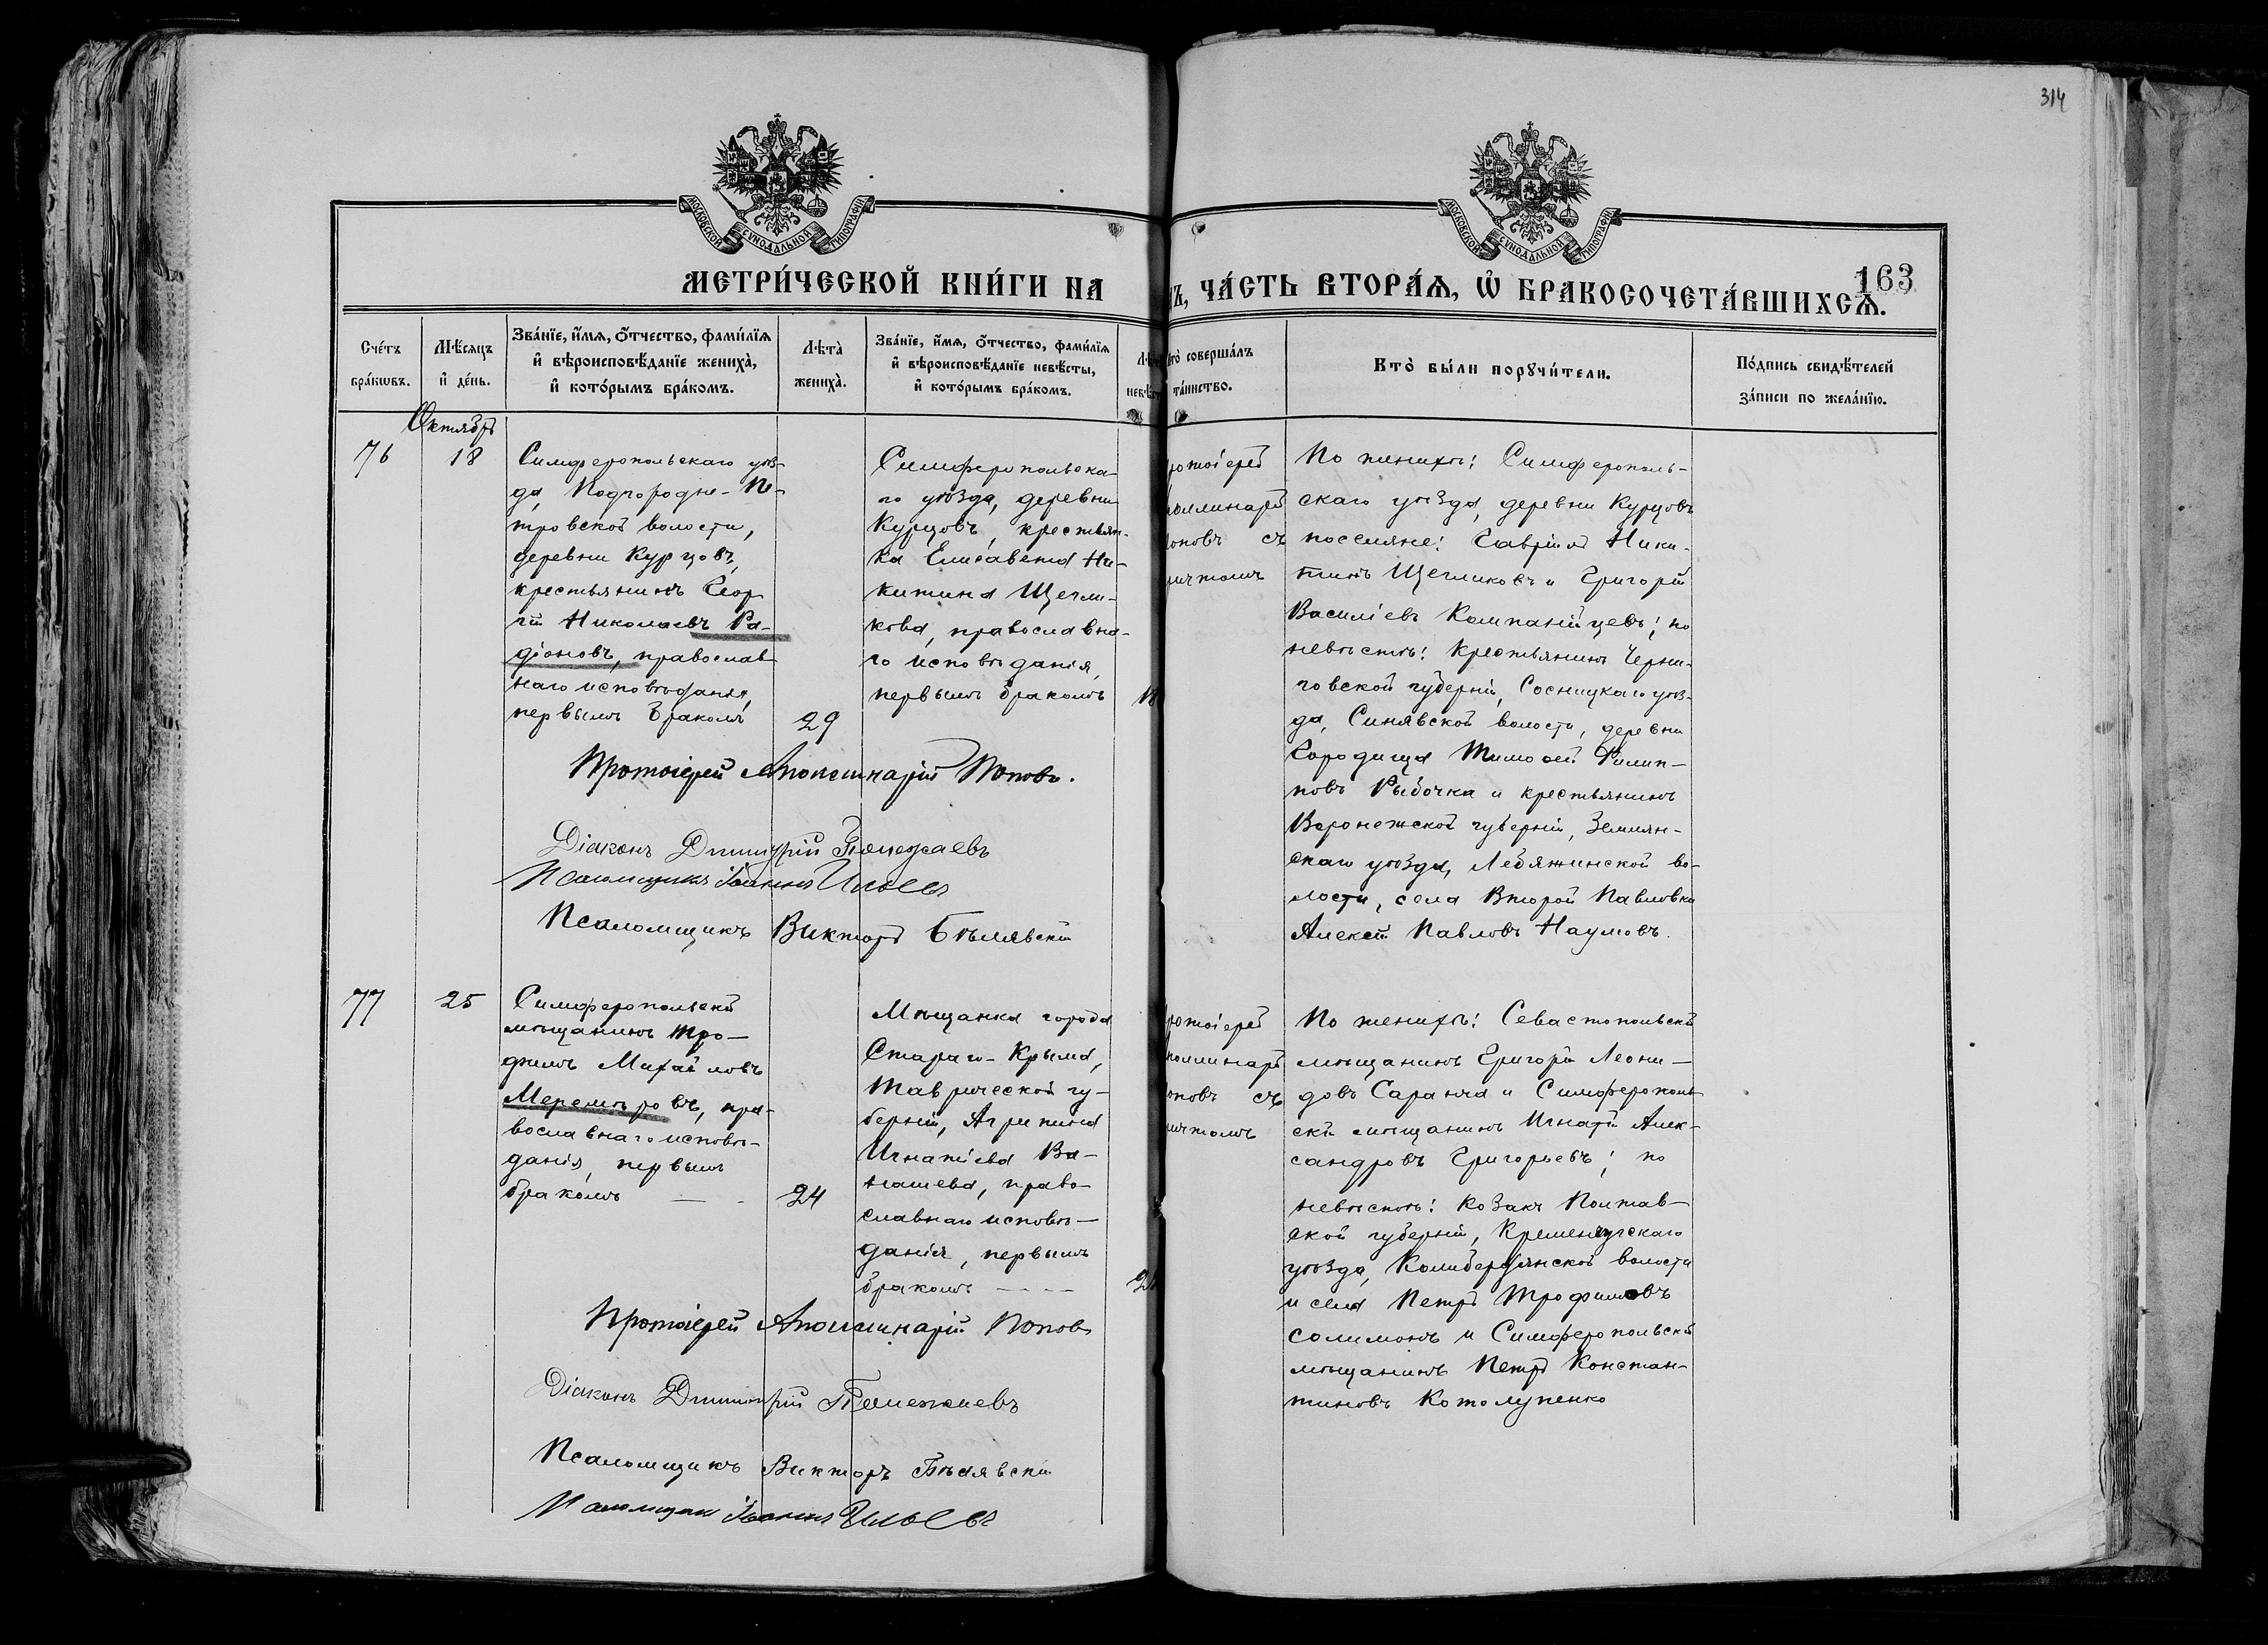 314
МОСКОВСКОЙ СУНОДАЛЬНОЙ ТИПОГРАФІИ
МОСКОВСКОЙ СУНОДАЛЬНОЙ ТИПОГРАФІИ
МЕТРИ́ЧЕСКОЙ КНИ́ГИ НА
Ъ, ЧА́СТЬ ВТОРА́Ѧ, Ѡ҆ БРАКОСОЧЕТА́ВШИХСѦ.
163
Сче́тъ
бра́кѡвъ.
Мѣ́сѧцъ
и҆ де́нь.
Зва́нїе, и҆́мѧ, ѻ҆́тчество, фами́лїѧ
и҆ вѣроисповѣ́данїе жениха̀,
и҆ кото́рымъ бра́комъ.
Лѣта̀
жениха̀.
Зва́нїе, и҆́мѧ, ѻ҆́тчество, фами́лїѧ
и҆ вѣроисповѣ́данїе невѣ́сты,
и҆ кото́рымъ бра́комъ.
Кто̀ соверша́лъ
та́инство.
Кто̀ бы́ли порꙋчи́тели.
По́дпись свидѣ́телей
за́писи по жела́нїю.
Октябрь
76
18
Симферопольскаго уѣз-
да, Подгородне-Пе-
тровской волости,
деревни Курцовъ,
крестьянинъ Геор-
гій Николаевъ Ра-
діоновъ, православ-
наго исповѣданія,
первымъ бракомъ
29
Симферопольска-
го уѣзда, деревни
Курцовъ, крестьян-
ка Елисавета Ни-
китина Щегли-
кова, православна-
го исповѣданія,
первымъ бракомъ
18
ротоіерей
оллинарій
оповъ съ
ричтомъ
По женихѣ: Симферополь-
скаго уѣзда, деревни Курцовъ
поселяне: Гавріилъ Ники-
тинъ Щегликовъ и Григорій
Василіевъ Компанійцевъ; по
невѣстѣ: крестьянинъ Черни-
говской губерніи, Сосницкаго уѣз-
да, Синявской волости, деревни
Городища Тимоѳей Филип-
повъ Рыбочка и крестьянинъ
Воронежской губерніи, Землян-
скаго уѣзда, Лебяжинской во-
лости, села Второй Павловки
Алексѣй Павловъ Наумовъ.
Протоіерей Аполлинарій Поповъ.
Діаконъ Димитрій
Псаломщикъ Іоаннъ
Псаломщикъ Викторъ Бѣлявскій
77
25
Симферопольскій
мѣщанинъ Тро-
фимъ Михайловъ
Меремѣровъ, пра-
вославнаго исповѣ-
данія, первымъ
бракомъ — -
24
Мѣщанка города
Стараго-Крыма,
Таврической гу-
берніи, Агрипина
Игнатіева Ва-
нашева, право-
славнаго исповѣ-
данія, первымъ
бракомъ ----
ротоіерей
поллинарій
оповъ съ
ричтомъ
По женихѣ: Севастопольскій
мѣщанинъ Григорій Леони-
довъ Саранча и Симферополь-
скій мѣщанинъ Игнатій Алек-
сандровъ Григорьевъ; по
невѣстѣ: козакъ Полтав-
ской губерніи, Кременчугскаго
уѣзда, Келибердянской волости
и села Петръ Трофимовъ
Солимонъ и Симферопольскій
мѣщанинъ Петръ Констан-
тиновъ Котолупенко
Протоіерей Аполлинарій Поповъ
Діаконъ Димитрій
Псаломщикъ Викторъ Бѣлявскій
Псаломщикъ Іоаннъ